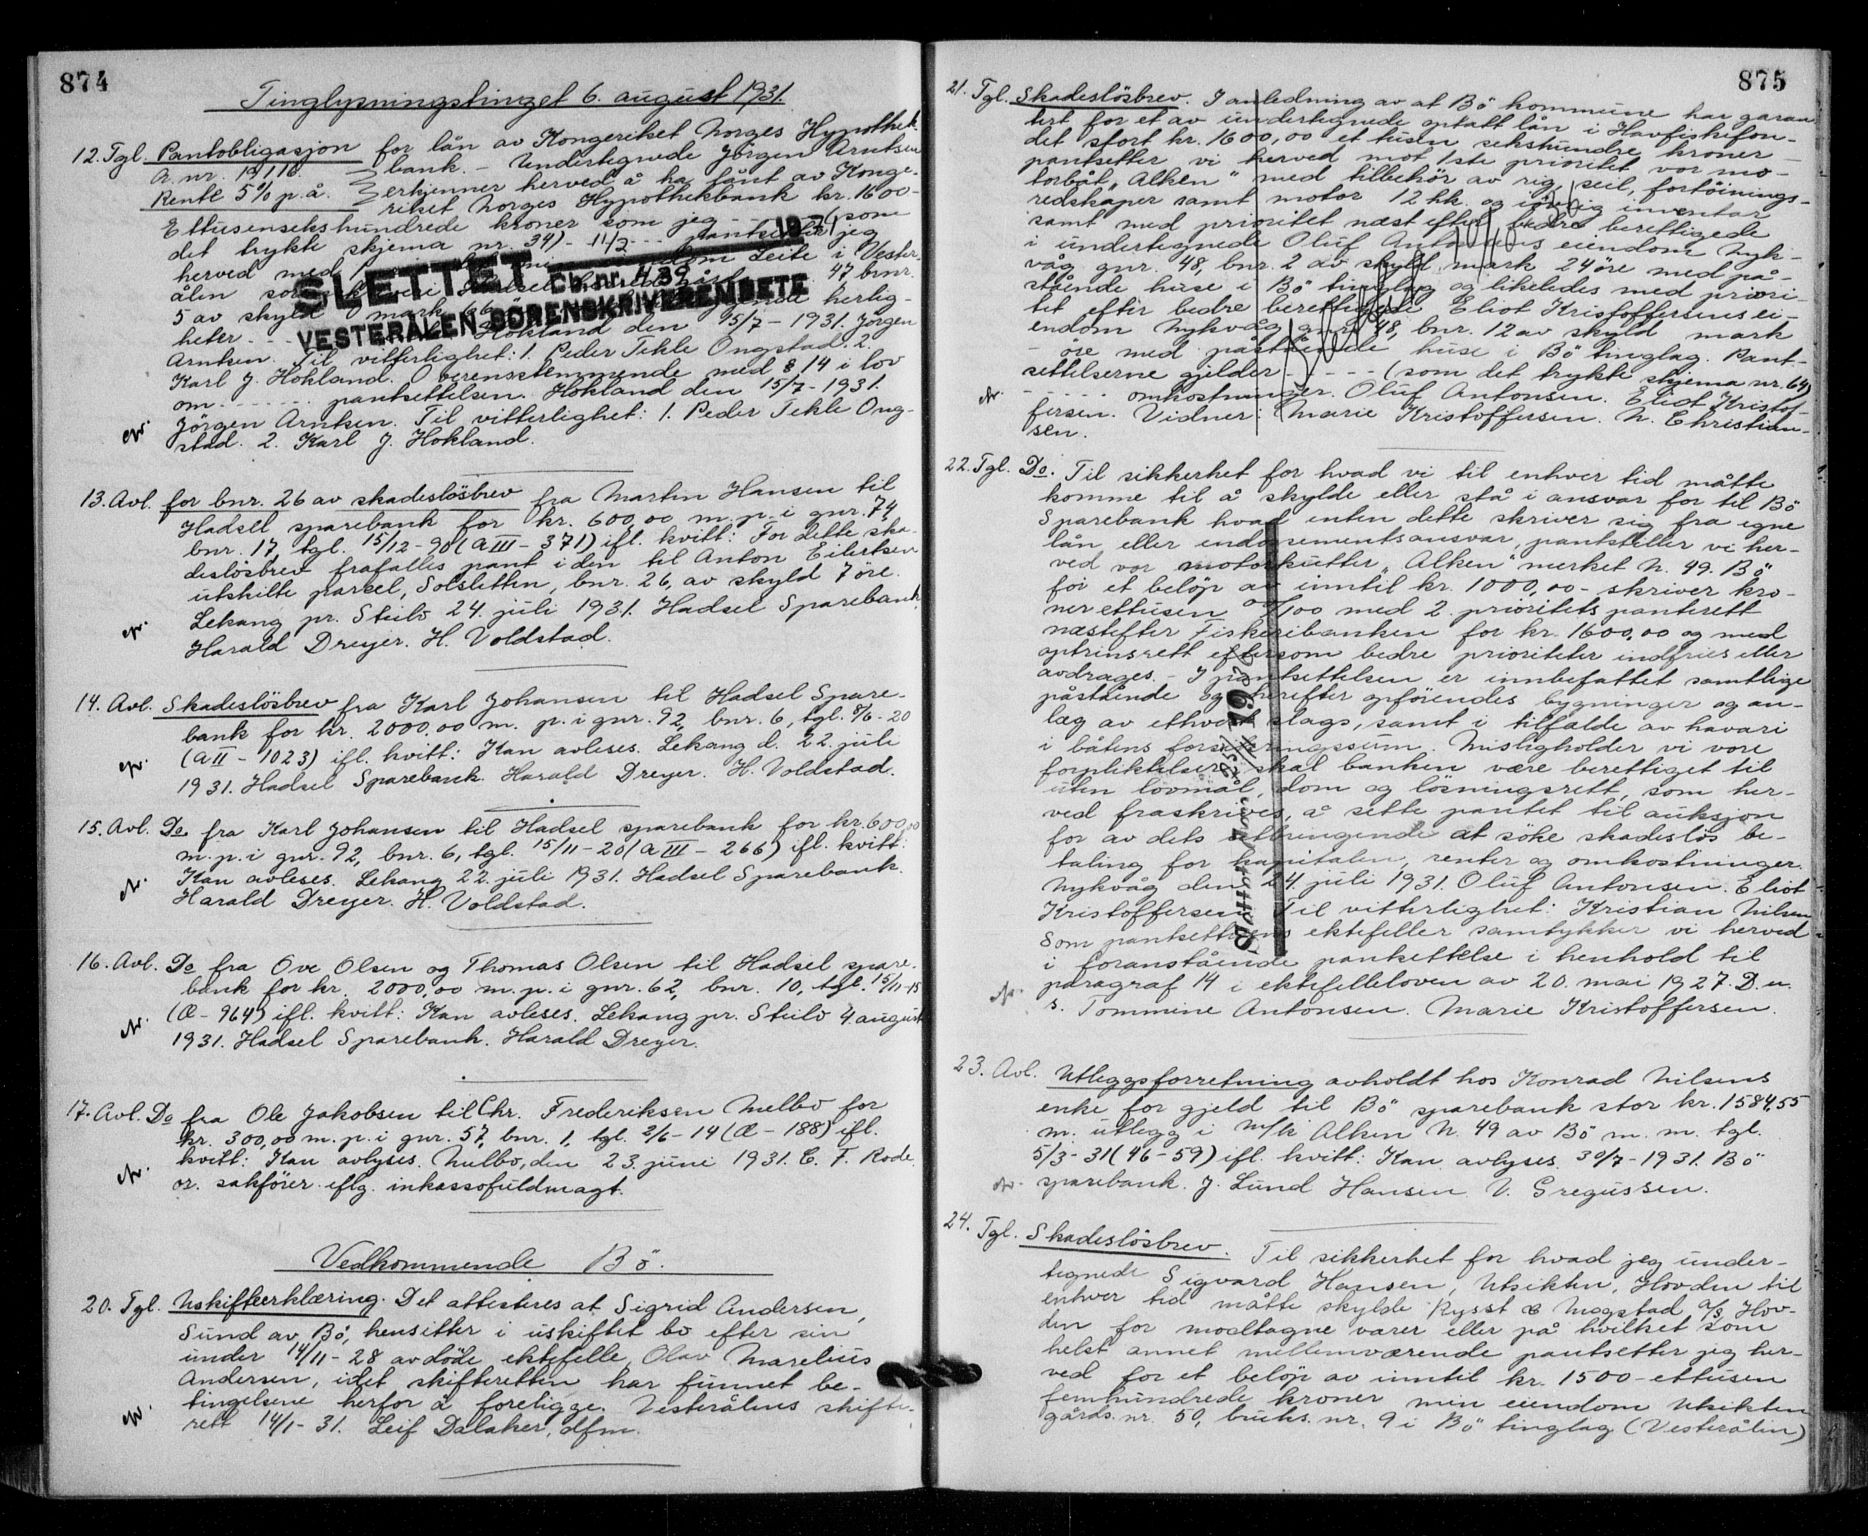 874
Tinglysningstinget 6. august 1931.
12. Tgl. Pantobligasjon for lån av Kongeriket Norges Hypothek-
A. nr. 19116. bank. - Undertegnede Jörgen Arntsen
Rente 5% p. å. erkjenner herved å ha lånt av Konge-
riket Norges Hypothekbank kr. 1600-
Ettusensekshundrede kroner som jeg - - - (som
det trykte skjema nr. 34) - 11/2 - - - pantsetter jeg
herved med Leite i Vester
ålen 47 brnr.
5 av skyld 0 mark 66 herlig-
heter - - - Hokland den 15/7 - 1931. Jörgen
Arntsen. Til vitterlighet: 1. Peder Tekle Ongstad. 2.
Karl J. Hokland. Overensstemmende med § 14 i lov
om - - - - - - pantsettelsen. Hokland den 15/7 - 1931.
Jörgen Arntsen. Til vitterlighet: 1. Peder Tekle Ong-
stad. 2. Karl J. Hokland.
SLETTET 1971
Cb. nr. 439
VESTERÅLEN SORENSKRIVEREMBETE
13. Avl. for bnr. 26 av skadeslösbrev fra Martin Hansen til
Hadsel sparebank for kr. 600,00 m. p. i gnr. 74,
bnr. 17, tgl. 15/12 - 20 (A III - 371) ifl. kvitt: For dette ska-
deslösbrev frafalles pant i den til Anton Eilertsen
utskilte parsel, Solsletten, bnr. 26, av skyld 7 öre.
Lekang pr. Steilo 24. juli 1931. Hadsel Sparebank.
Harald Dreyer. H. Voldstad.
14. Avl. Skadeslösbrev fra Karl Johansen til Hadsel Spare-
bank for kr. 2000,00 m. p. i gnr. 92, bnr. 6, tgl. 8/6 - 20
(A II - 1023) ifl. kvitt: Kan avleses. Lekang d. 22. juli
1931. Hadsel Sparebank. Harald Dreyer. H. Voldstad.
15. Avl. Do fra Karl Johansen til Hadsel sparebank for kr. 600,00
m. p. i gnr. 92, bnr. 6, tgl. 15/11 - 20 (A III - 266) ifl. kvitt:
Kan avleses. Lekang 22. juli 1931. Hadsel Sparebank.
Harald Dreyer. H. Voldstad.
16. Avl. Do fra Ove Olsen og Thomas Olsen til Hadsel spare-
bank for kr. 2000,00 m. p. i gnr. 62, bnr. 10, tgl. 15/11 - 15
(Æ - 964) ifl. kvitt: Kan avleses. Lekang pr. Steilo 4. august
1931. Hadsel Sparebank. Harald Dreyer.
17. Avl. Do fra Ole Jakobsen til Chr. Frederiksen Melbo for
kr. 300,00 m. p. i gnr. 57, bnr. 1, tgl. 2/6 - 14 (Æ - 188) ifl.
kvitt: Kan avlyses. Melbo, den 23. juni 1931. C. F. Rode
or. sakförer iflg. inkassofuldmagt.
Vedkommende Bö.
20. Tgl. Uskifteerklæring. Det attesteres at Sigrid Andersen,
Sund av Bö, hensitter i uskiftet bo efter sin
under 14/11 - 28 avdöde ektefelle, Olav Marelius
Andersen, idet skifteretten har funnet be-
tingelsene herfor å foreligge. Vesterålens skifte-
rett 14/1 - 31. Leif Dalaker, dfm.
875
21. Tgl. Skadeslösbrev. I anledning av at Bö kommune har garan-
tert for et av undertegnede optatt lån i Havfiskefon-
det stort kr. 1600,00 et tusen sekshundre kroner -
pantsetter vi herved mot 1ste prioritet vor mo-
torbåt "Alken" med tilbehör av rig, seil, fortöinings-
redskaper samt motor 12 hk. og övrig inventar
samt med prioritet næst efter bedre berettigede
i undertegnede Oluf Antonsens eiendom Nyk-
våg gnr. 48, bnr. 2 av skyld mark 24 öre med på-
stående huse i Bö tinglag og likeledes med priori-
tet efter bedre berettigede Eliot Kristoffersens ei-
endom Nykvåg gnr. 48, bnr. 12 av skyld mark
- öre med påstående huse i Bö tinglag. Pant-
settelserne gjelder - - - - - (som det trykte skjema nr. 64)
- - - - - omkostninger. Oluf Antonsen. Eliot Kristof-
fersen. Vidner: Marie Kristoffersen. N. Christian-
sen.
22. Tgl. Do. Til sikkerhet for hvad vi til enhver tid måtte
komme til å skylde eller stå i ansvar for til Bö
Sparebank hvad enten dette skriver sig fra egne
lån eller endosementsansvar, pantsteller vi her-
ved vor motorkutter "Alken" merket N. 49. Bö
for et belöp av inntil kr. 1000,00 - skriver kro-
ner ettusen 00/100 med 2. prioritets panterett
næstefter Fiskeribanken for kr. 1600,00 og med
optrinsrett eftersom bedre prioriteter indfries eller
avdrages. - I pantsettelsen er innbefattet samtlige
påstående og herefter opförendes bygninger og an-
læg av ethvert slags, samt i tilfælde av havari
i båtens forsikringssum. Misligholder vi vore
forpliktelser, skal banken være berettiget til
uten lovmål, dom og lösningsrett, som her-
ved fraskrives, å sette pantet til auksjon
for av dets utbringende at söke skadeslös be-
taling for kapitalen, renter og omkostninger.
Nykvåg den 24. juli 1931. Oluf Antonsen. Eliot
Kristoffersen. Til vitterlighet: Kristian Nilsen
Som pantsetternes ektefeller samtykker vi herved
i foranstående pantsettelse i henhold til
paragraf 14 i ektefelleloven av 20. mai 1927. D. u.
s. Tommine Antonsen. Marie Kristoffersen.
23. Avl. Utleggsforretning avholdt hos Konrad Nilsens
enke for gjeld til Bö sparebank stor kr. 1584,55
m. utlegg i m/k Alken N. 49 av Bö m. m. tgl.
5/3 - 31 (46 - 59) ifl. kvitt: Kan avlyses. 30/7 - 1931. Bö
sparebank. J. Lund Hansen. V. Gregussen.
24. Tgl. Skadeslösbrev. Til sikkerhet for hvad jeg under-
tegnede Sigvard Hansen, Utsikten, Hovden til
enhver tid måtte skylde Rysst & Mogstad A/S Hov-
den for modtagne varer eller på hvilket som
helst annet mellemværende pantsetter jeg her-
ved for et belöp av inntil kr. 1500 - ettusen
femhundrede kroner min eiendom Utsikten
gårds. nr. 50, bruks. nr. 9 i Bö tinglag (Vesterålen)